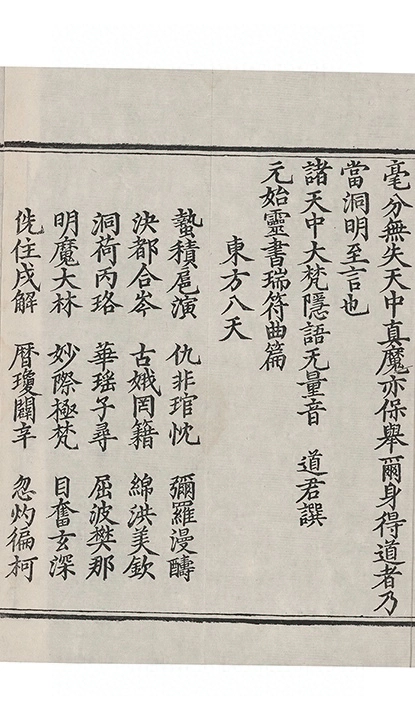 毫分無失天中真魔亦保舉爾身得道者乃
當洞明至言也
諸天中大梵隱語无量音　道君譔
元始靈書瑞符曲篇
東方八天
蟄積扈演　仇非琯忱　彌羅漫醻
泱都合岑　古娥罔籍　綿洪美欽
洞荷丙珞　華瑶子尋　屈波樊那
明魔大林　妙際極梵　目奮玄深
侁住戌解　曆瓊闢辛　忽灼徧柯